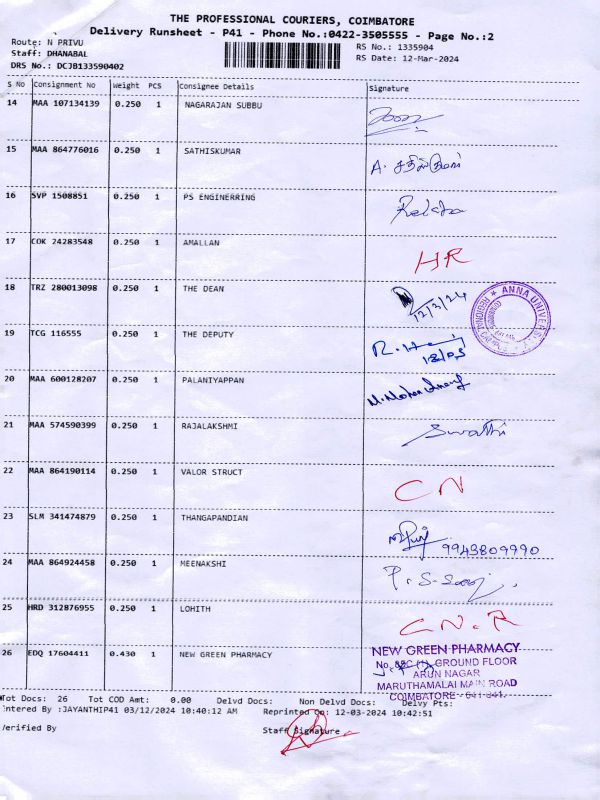 THE PROFESSIONAL COURIERS, COIMBATORE
Delivery Runsheet - P41 - Phone No.:0422-3505555 - Page No.:2
Route: N PRIVU
RS No.: 1335904
Staff: DHANABAL
RS Date: 12-Mar-2024
DRS No.: DCJB133590402
S No Consignment No Weight PCS Consignee Details Signature
14 MAA 107134139 0.250 1 NAGARAJAN SUBBU
15 MAA 864776016 0.250 1 SATHISKUMAR A. சதிஸ்குமார்
16 SVP 1508851 0.250 1 PS ENGINERRING
17 COK 24283548 0.250 1 AMALLAN HR
18 TRZ 280013098 0.250 1 THE DEAN 12/3/24 ANNA UNIVERSITY
19 TCG 116555 0.250 1 THE DEPUTY
20 MAA 600128207 0.250 1 PALANIYAPPAN
21 MAA 574590399 0.250 1 RAJALAKSHMI Swathi
22 MAA 864190114 0.250 1 VALOR STRUCT CN
23 SLM 341474879 0.250 1 THANGAPANDIAN 9943809990
24 MAA 864924458 0.250 1 MEENAKSHI
25 HRD 312876955 0.250 1 LOHITH CN.R
26 EDQ 17604411 0.430 1 NEW GREEN PHARMACY NEW GREEN PHARMACY
GROUND FLOOR
ARUN NAGAR
MARUTHAMALAI MAIN ROAD
COIMBATORE - 641 041.
Tot Docs: 26 Tot COD Amt: 0.00 Delvd Docs: Non Delvd Docs: Delvy Pts:
Entered By :JAYANTHIP41 03/12/2024 10:40:12 AM Reprinted On: 12-03-2024 10:42:51
Verified By Staff Signature